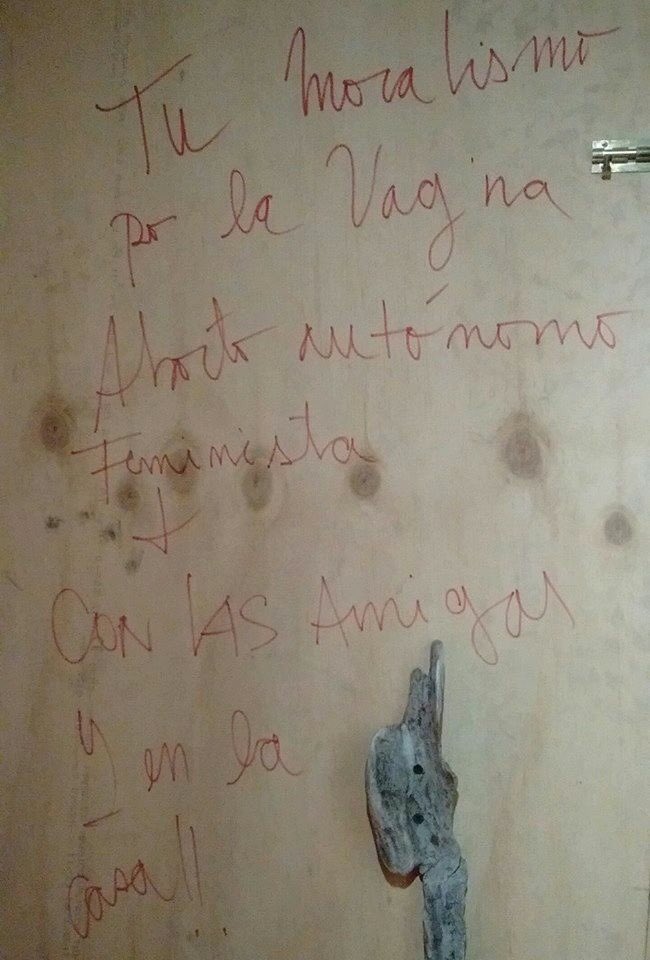 Tú moralismo
po la Vagina
Aborto autónomo
Feminista
+
CON LAS Amigas
y en la
casa!!